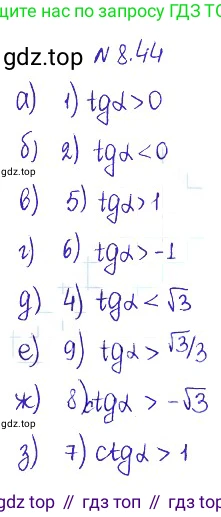 щите нас по запросу ГДЗ ТО
gdz.top N 8.44
а) 1) tgα>0
б) 2) tgα<0
gdz.top
в) 5) tgα>1
г) 6) tgα>-1
gdz.top
д) 4) tgα<√3
е) 9) tgα>√3/3
gdz.top
ж) 8) ctgα > -√3
з) 7) ctgα > 1
gdz.top // гдз топ // гдз.топ